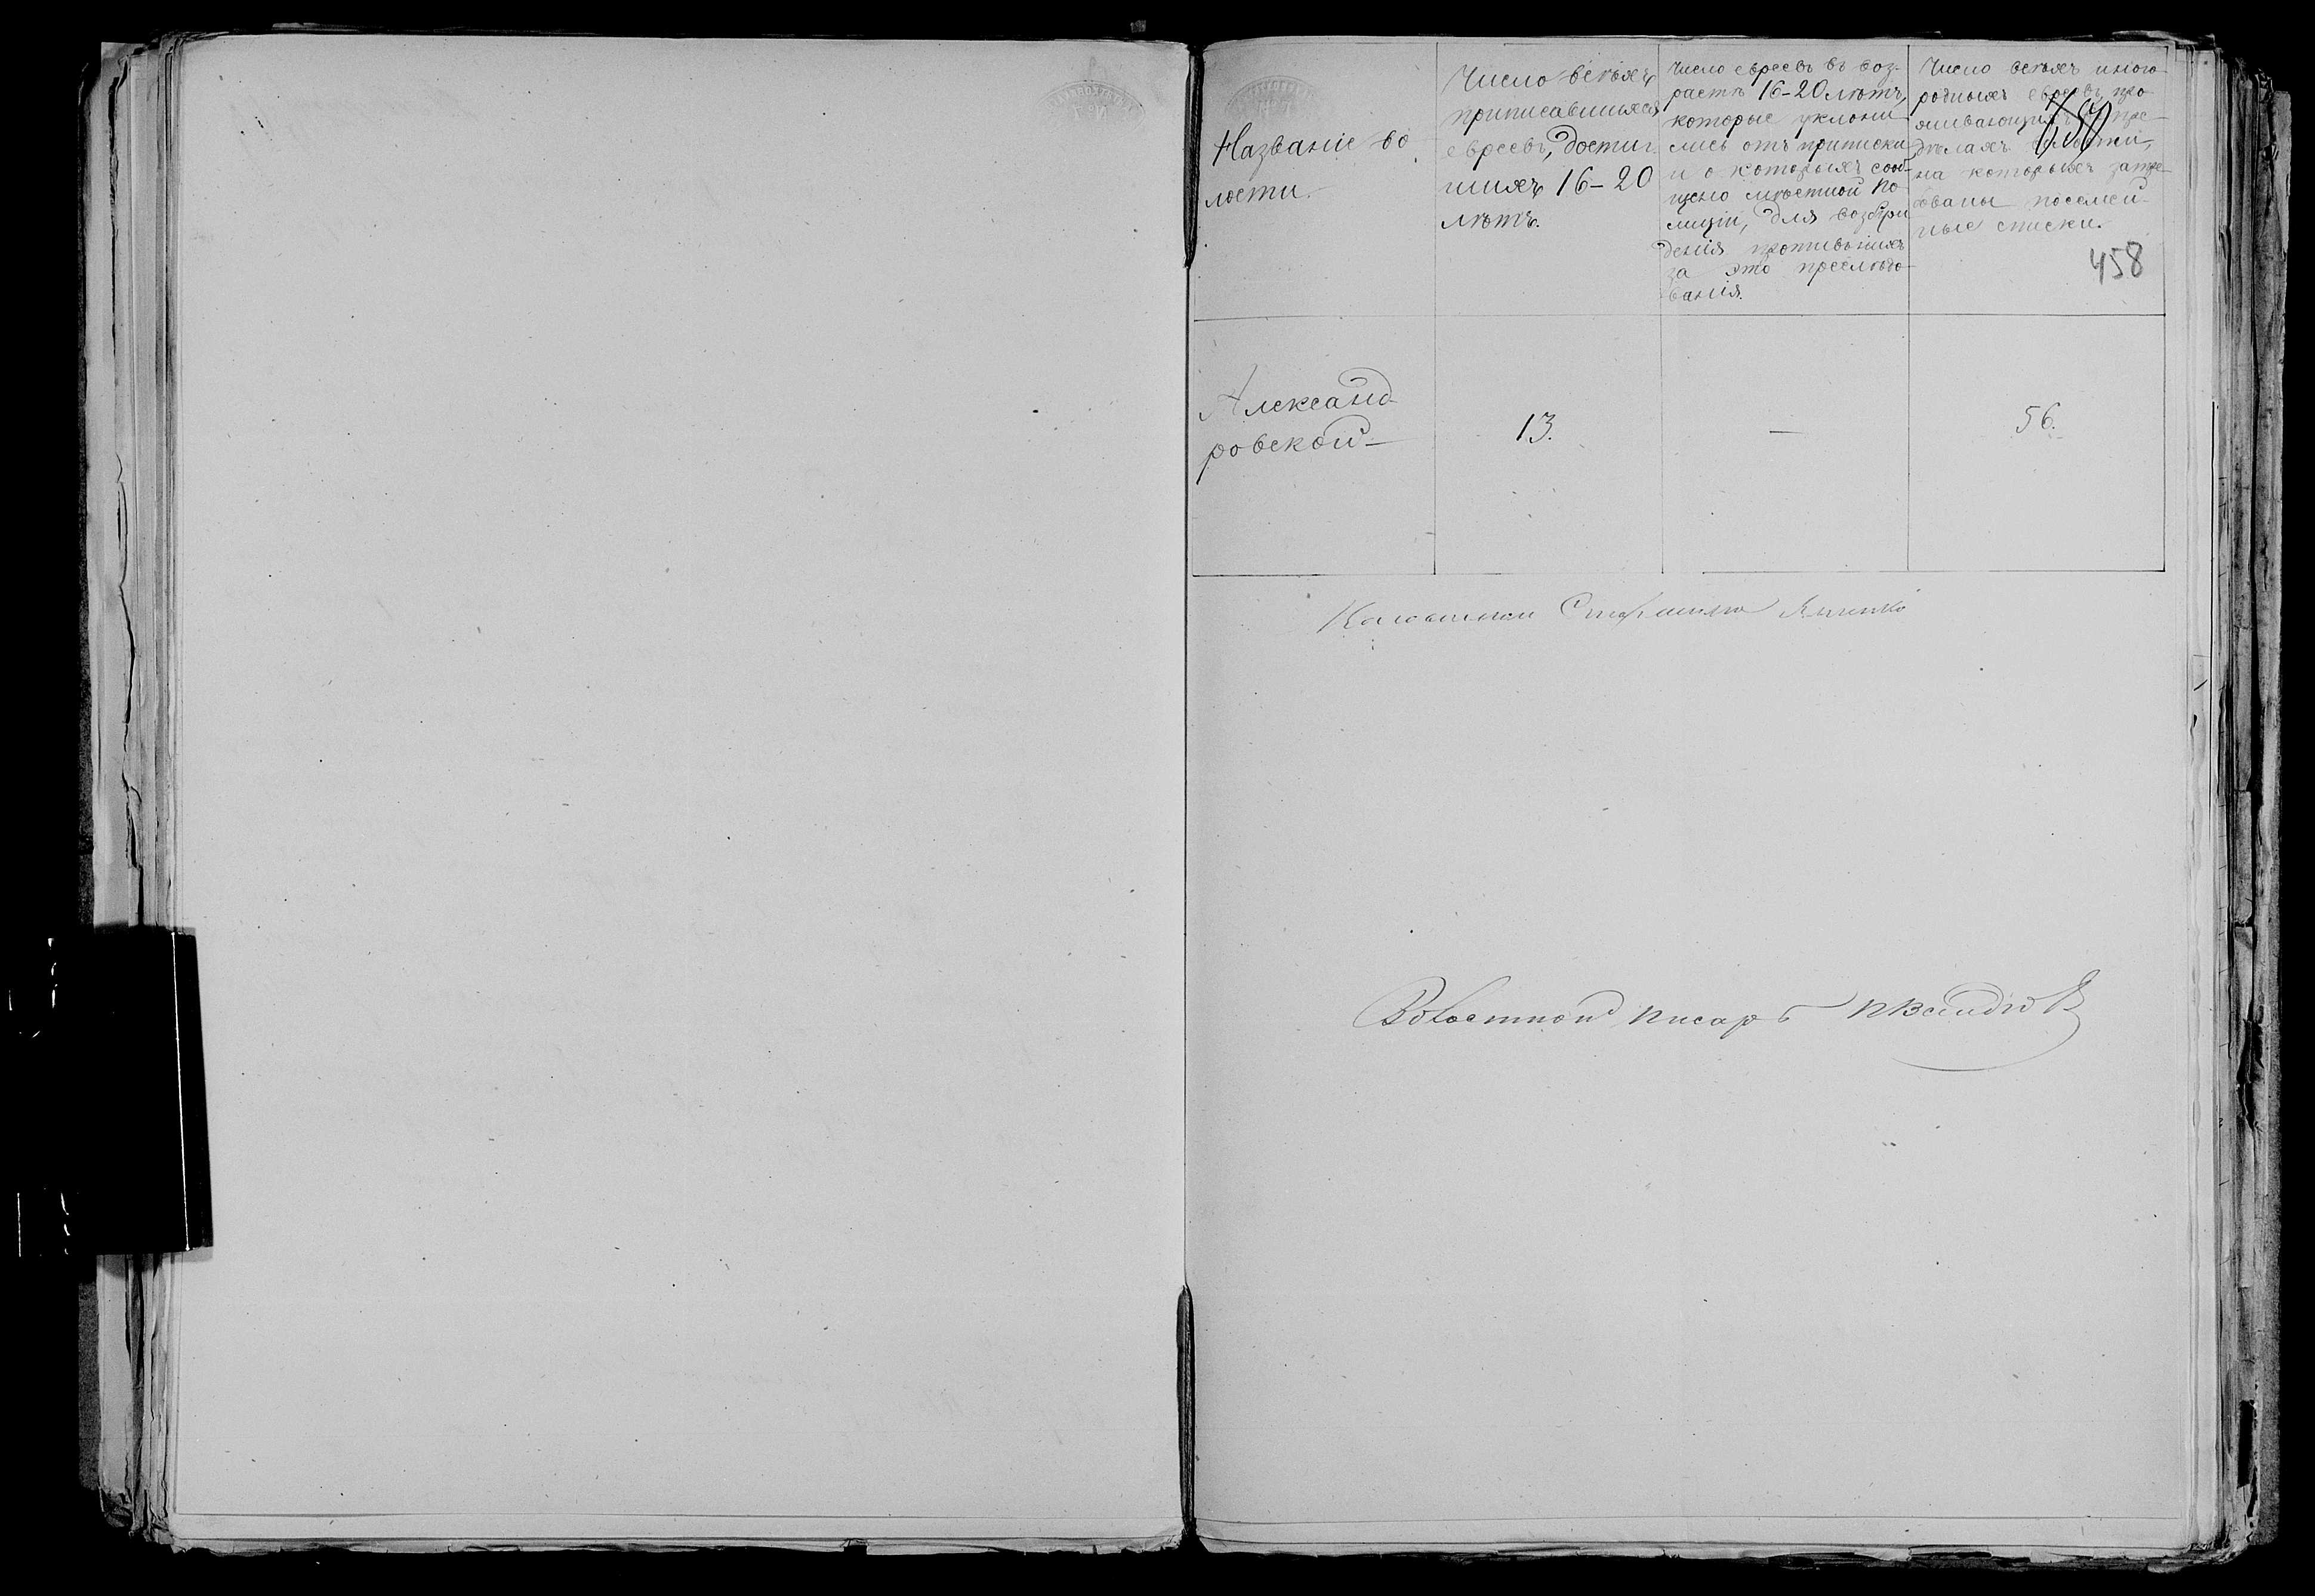 Названіе во
лости.
Число всѣхъ
приписавшихся
евреевъ, достиг
шихъ 16-20
лѣтъ.
Число евреевъ въ воз-
растѣ 16-20 лѣтъ,
которые уклони
лись отъ приписки
и о которыхъ сооб-
щено мѣстной по
лиціи, для возбуж
денія противъ нихъ
за это преслѣдо-
ванія.
Число всѣхъ иного
родныхъ евреевъ, про
живающихъ въ пре-
дѣлахъ волости,
на которыхъ затре-
бованы посемей-
ные списки.
458
Александ-
ровской —
13.
—
56.
Волостной Старшина
Волостной писарь